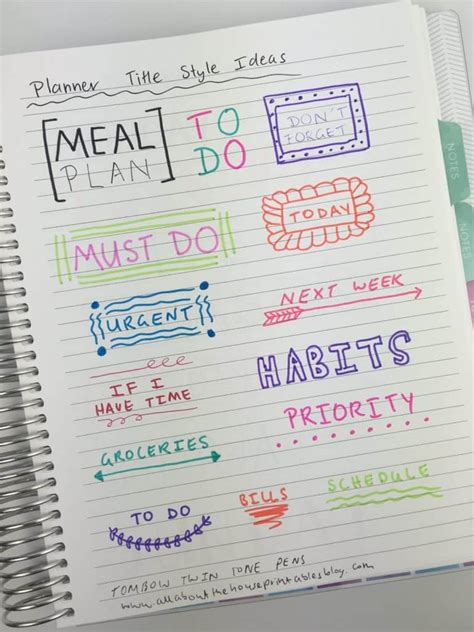 Planner Title Style Ideas
[MEAL PLAN]
TO DO
DON'T FORGET
MUST DO
TODAY
URGENT
NEXT WEEK
IF I HAVE TIME
HABITS
PRIORITY
GROCERIES
TO DO
BILLS
SCHEDULE
TOMBOW TWIN TONE PENS
www.allaboutthehouseprintablesblog.com
NOTES
NOTES